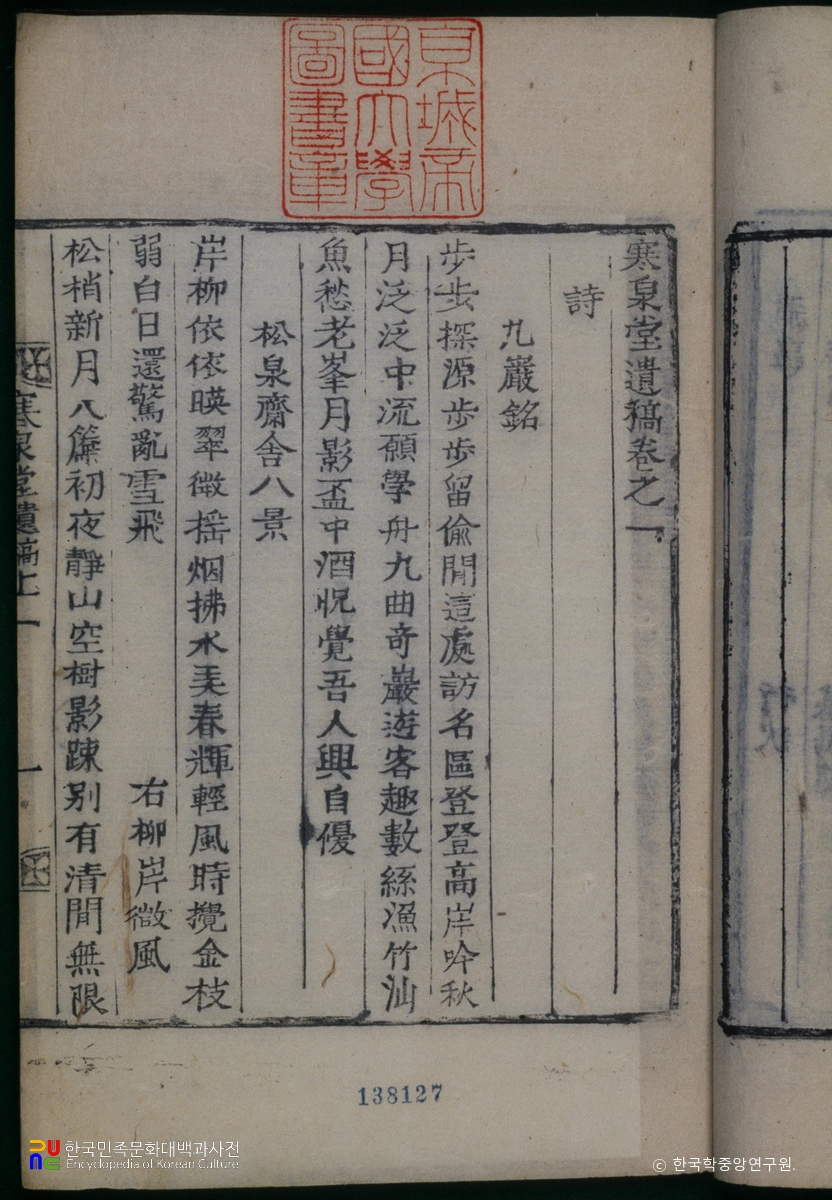 京城帝
國大學
圖書章
寒泉堂遺稿卷之一
詩
九巖銘
步步探源步步留偷閒這處訪名區登登高岸吟秋
月泛泛中流願學舟九曲奇巖遊客趣數絲漁竹汕
魚愁老峯月影盃中酒怳覺吾人興自優
松泉齋舍八景
岸柳依依暎翠微搖烟拂水美春輝輕風時攪金枝
弱白日還驚亂雪飛
右柳岸微風
松梢新月入簾初夜靜山空樹影踈別有清閒無限
寒泉堂遺稿上
一
138127
한국민족문화대백과사전
Encyclopedia of Korean Culture
© 한국학중앙연구원.